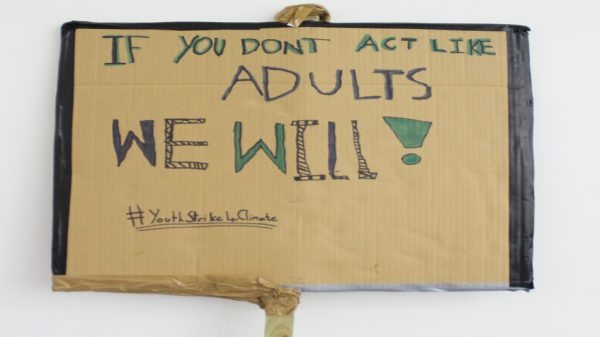 IF YOU DONT ACT LIKE
ADULTS
WE WILL!
#YouthStrike4Climate